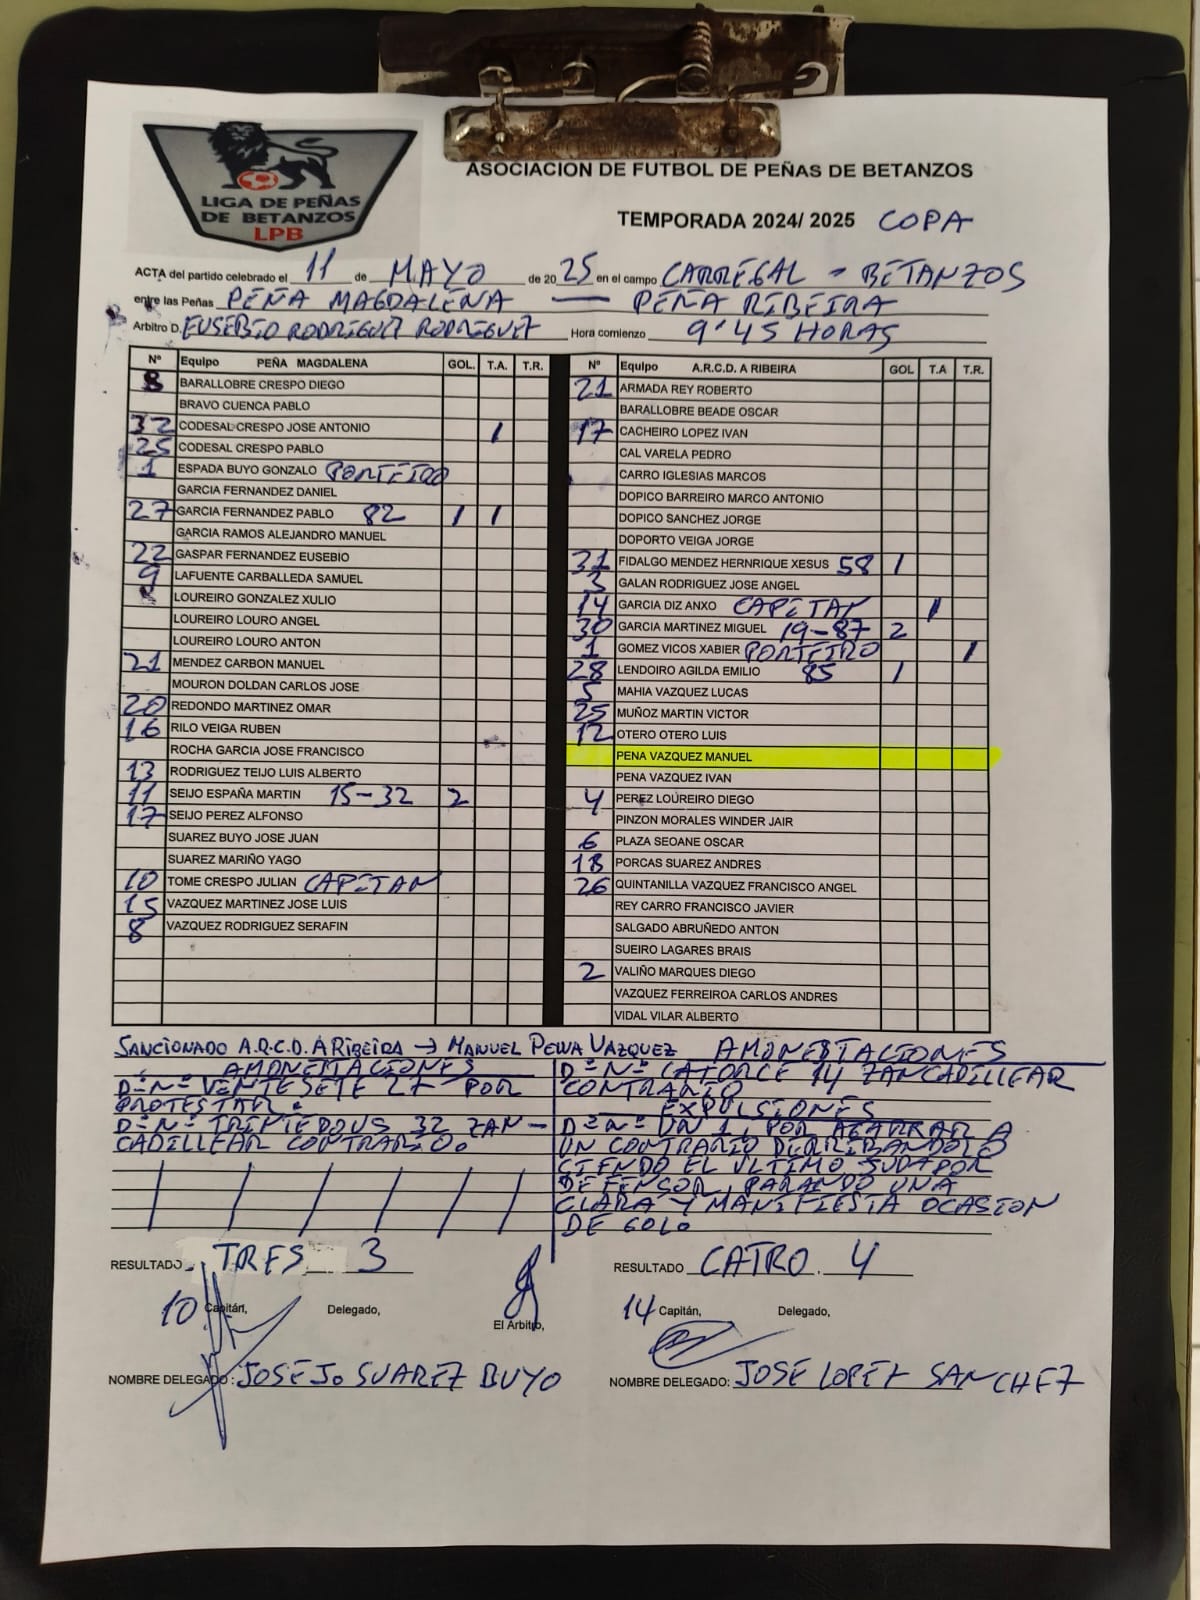 LIGA DE PEÑAS
DE BETANZOS
LPB
ASOCIACION DE FUTBOL DE PEÑAS DE BETANZOS
TEMPORADA 2024/ 2025 COPA
ACTA del partido celebrado el 11 de MAYO de 2025 en el campo CARREGAL - BETANZOS
entre las Peñas PEÑA MAGDALENA — PEÑA RIBEIRA
Arbitro D. EUSEBIO RODRIGUEZ RODRIGUEZ Hora comienzo 9'45 HORAS
Nº Equipo PEÑA MAGDALENA GOL. T.A. T.R.
8 BARALLOBRE CRESPO DIEGO
BRAVO CUENCA PABLO
32 CODESAL CRESPO JOSE ANTONIO 1
25 CODESAL CRESPO PABLO
1 ESPADA BUYO GONZALO PORTEIRO
GARCIA FERNANDEZ DANIEL
27 GARCIA FERNANDEZ PABLO 82 1 1
GARCIA RAMOS ALEJANDRO MANUEL
22 GASPAR FERNANDEZ EUSEBIO
9 LAFUENTE CARBALLEDA SAMUEL
LOUREIRO GONZALEZ XULIO
LOUREIRO LOURO ANGEL
LOUREIRO LOURO ANTON
21 MENDEZ CARBON MANUEL
MOURON DOLDAN CARLOS JOSE
20 REDONDO MARTINEZ OMAR
16 RILO VEIGA RUBEN
ROCHA GARCIA JOSE FRANCISCO
13 RODRIGUEZ TEIJO LUIS ALBERTO
11 SEIJO ESPAÑA MARTIN 15-32 2
17 SEIJO PEREZ ALFONSO
SUAREZ BUYO JOSE JUAN
SUAREZ MARIÑO YAGO
10 TOME CRESPO JULIAN CAPITAN
15 VAZQUEZ MARTINEZ JOSE LUIS
8 VAZQUEZ RODRIGUEZ SERAFIN
Nº Equipo A.R.C.D. A RIBEIRA GOL T.A T.R.
21 ARMADA REY ROBERTO
BARALLOBRE BEADE OSCAR
17 CACHEIRO LOPEZ IVAN
CAL VARELA PEDRO
CARRO IGLESIAS MARCOS
DOPICO BARREIRO MARCO ANTONIO
DOPICO SANCHEZ JORGE
DOPORTO VEIGA JORGE
31 FIDALGO MENDEZ HERNRIQUE XESUS 58 1
3 GALAN RODRIGUEZ JOSE ANGEL
14 GARCIA DIZ ANXO CAPITAN 1
30 GARCIA MARTINEZ MIGUEL 19-87 2
1 GOMEZ VICOS XABIER PORTEIRO 1
28 LENDOIRO AGILDA EMILIO 85 1
5 MAHIA VAZQUEZ LUCAS
25 MUÑOZ MARTIN VICTOR
12 OTERO OTERO LUIS
PENA VAZQUEZ MANUEL
PENA VAZQUEZ IVAN
4 PEREZ LOUREIRO DIEGO
PINZON MORALES WINDER JAIR
6 PLAZA SEOANE OSCAR
18 PORCAS SUAREZ ANDRES
26 QUINTANILLA VAZQUEZ FRANCISCO ANGEL
REY CARRO FRANCISCO JAVIER
SALGADO ABRUÑEDO ANTON
SUEIRO LAGARES BRAIS
2 VALIÑO MARQUES DIEGO
VAZQUEZ FERREIROA CARLOS ANDRES
VIDAL VILAR ALBERTO
SANCIONADO A.R.C.D. A RIBEIRA → MANUEL PENA VAZQUEZ
AMONESTACIONES
D= Nº VEINTESETE 27 POR
PROTESTAR.
D= Nº TRINTEDOUS 32 ZAN-
CADILLEAR CONTRARIO.
AMONESTACIONES
D= Nº CATORCE 14 ZANCADILLEAR
CONTRARIO
EXPULSIONES
D= Nº UN 1, POR AGARRAR A
UN CONTRARIO DERRIBANDOLO
SIENDO EL ULTIMO JUGADOR
DEFENSOR, PARANDO UNA
CLARA Y MANIFIESTA OCASION
DE GOLO
RESULTADO TRES 3
RESULTADO CATRO 4
10 Capitán, Delegado,
El Arbitro,
14 Capitán, Delegado,
NOMBRE DELEGADO: JOSE Jo SUAREZ BUYO
NOMBRE DELEGADO: JOSE LOPEZ SANCHEZ